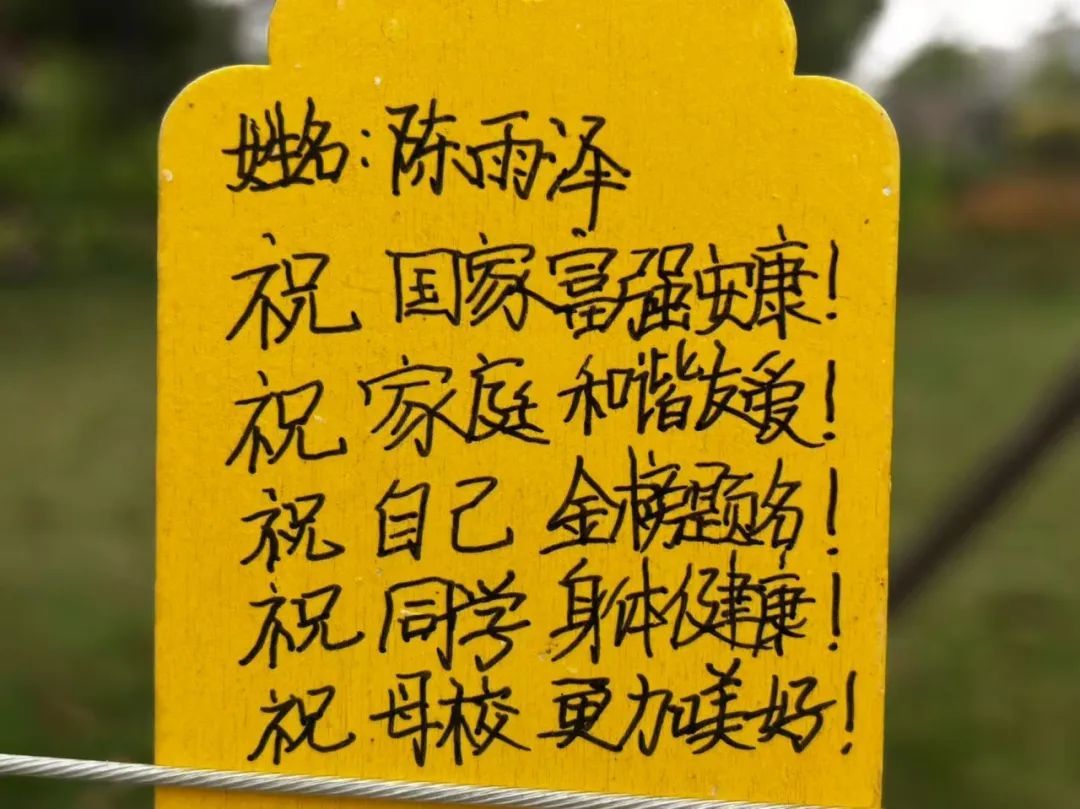 姓名:陈雨泽
祝国家富强安康!
祝家庭和谐友爱!
祝自己金榜题名!
祝同学身体健康!
祝母校更加美好!